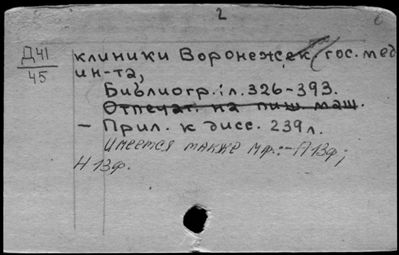 2
Д41
45
клиники Воронежск. гос. мед
ин-та,
Библиогр.: л. 326-393.
Отпечат. на пиш. маш.
– Прил. к дисс. 239 л.
Имеется также мф.:–П 13ф;
Н 13ф.